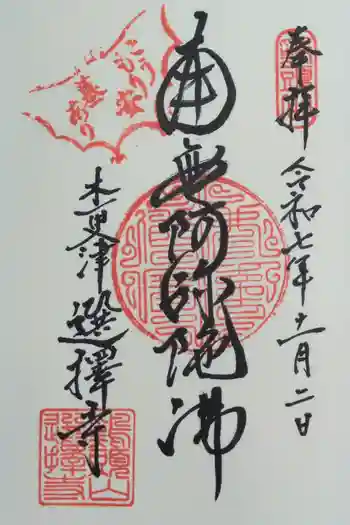 奉拝
令和七年十一月二日
南無阿弥陀佛
木更津
選擇寺
こうもり安
墓あり